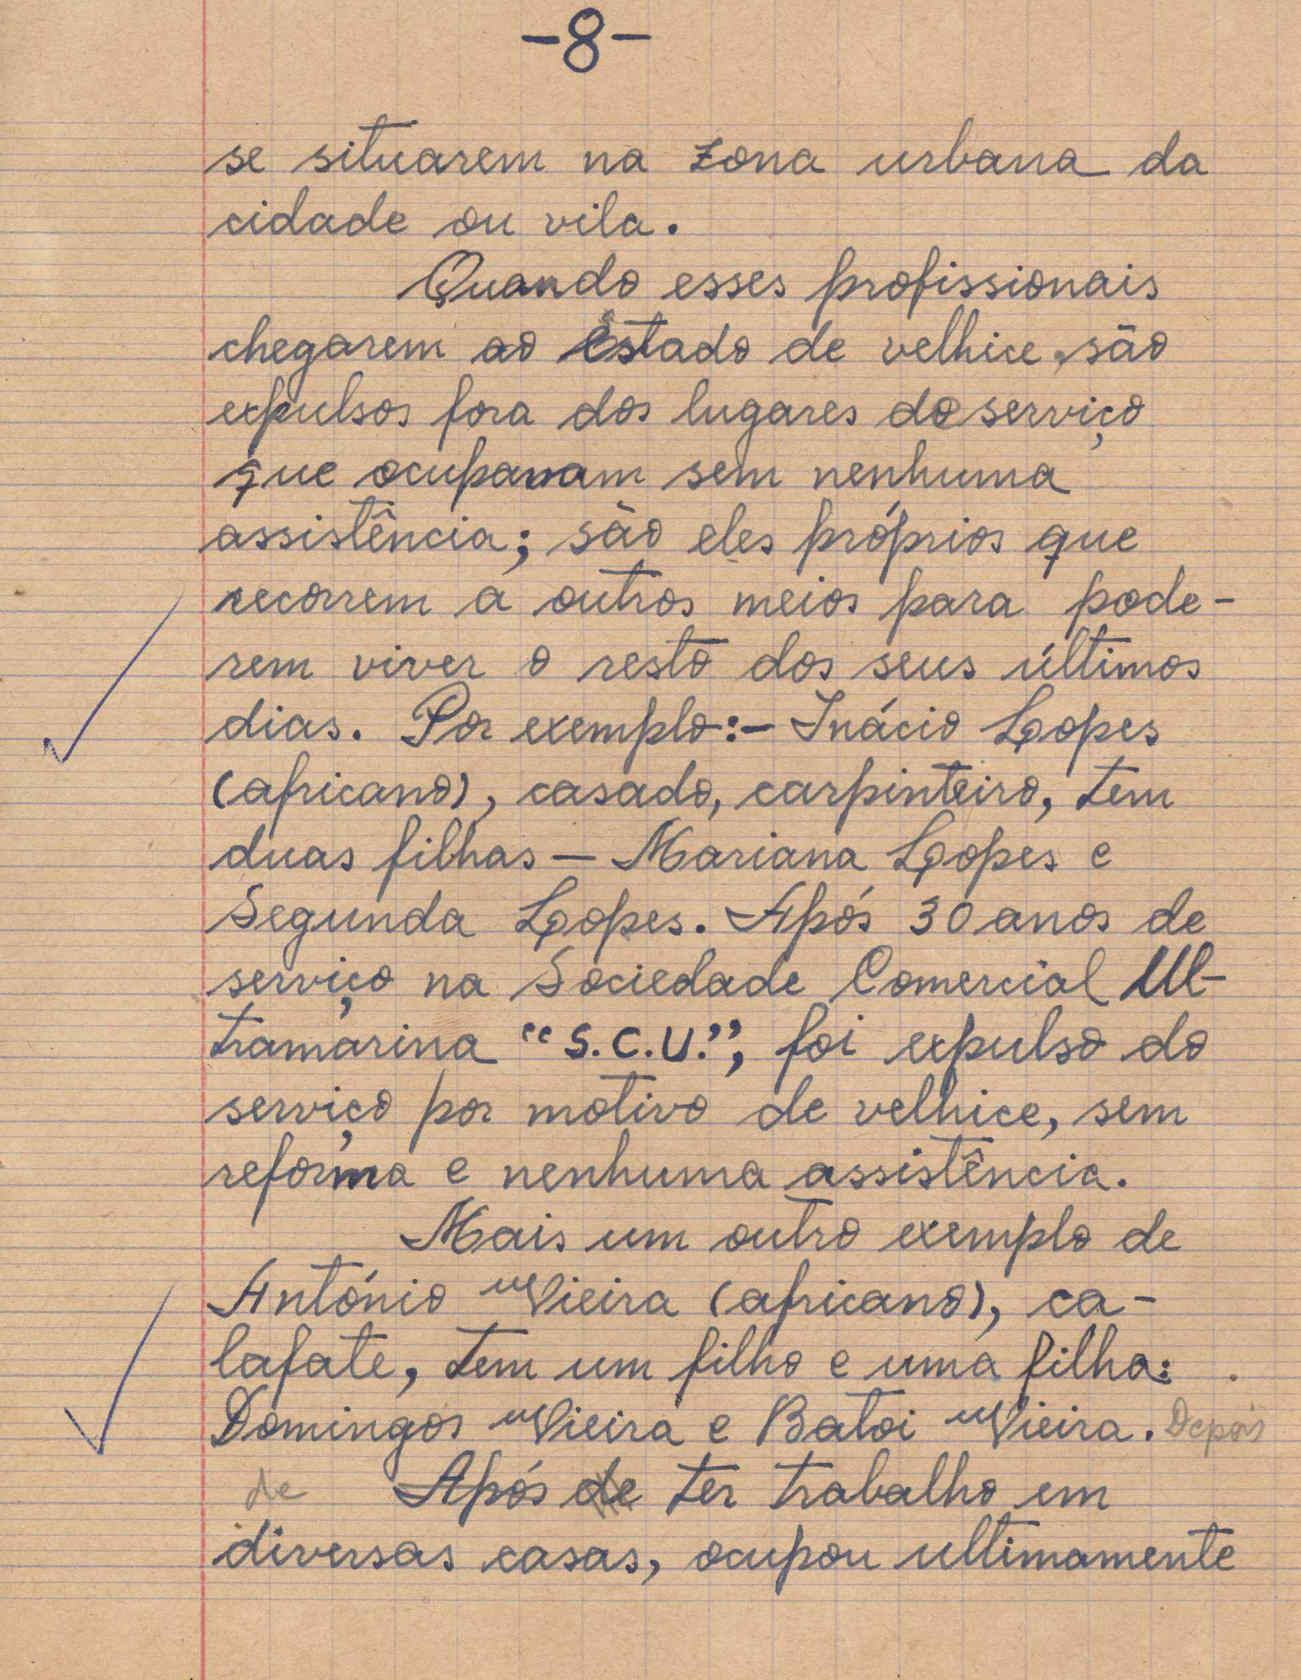 -8-
se situarem na zona urbana da
cidade ou vila.
Quando esses profissionais
chegarem ao estado de velhice, são
expulsos fora dos lugares do serviço
que ocupavam sem nenhuma
assistência; são eles próprios que
recorrem a outros meios para pode-
rem viver o resto dos seus últimos
dias. Por exemplo:- Inácio Lopes
(africano), casado, carpinteiro, tem
duas filhas — Mariana Lopes e
Segunda Lopes. Após 30 anos de
serviço na Sociedade Comercial Ul-
tramarina "S.C.U.", foi expulso do
serviço por motivo de velhice, sem
reforma e nenhuma assistência.
Mais um outro exemplo de
António Vieira (africano), ca-
lafate, tem um filho e uma filha:
Domingos Vieira e Batoi Vieira. Depois
de Após de ter trabalho em
diversas casas, ocupou ultimamente